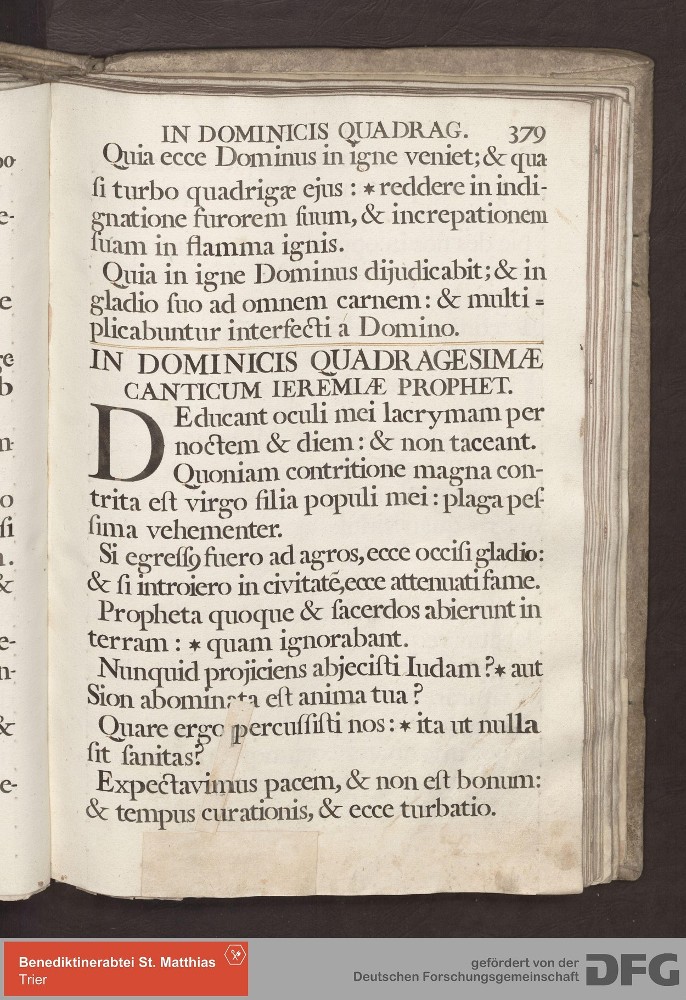 IN DOMINICIS QUADRAG. 379
Quia ecce Dominus in igne veniet; & qua
ſi turbo quadrigæ ejus : * reddere in indi-
gnatione furorem ſuum, & increpationem
ſuam in flamma ignis.
Quia in igne Dominus dijudicabit; & in
gladio ſuo ad omnem carnem: & multi =
plicabuntur interfecti à Domino.
IN DOMINICIS QUADRAGESIMÆ
CANTICUM IEREMIÆ PROPHET.
DEducant oculi mei lacrymam per
noctem & diem : & non taceant.
Quoniam contritione magna con-
trita eſt virgo filia populi mei : plaga peſ-
ſima vehementer.
Si egreſſꝯ fuero ad agros, ecce occiſi gladio:
& ſi introiero in civitatē, ecce attenuati fame.
Propheta quoque & ſacerdos abierunt in
terram : * quam ignorabant.
Nunquid projiciens abjeciſti Iudam? * aut
Sion abominata eſt anima tua ?
Quare ergo percuſſiſti nos : * ita ut nulla
ſit ſanitas?
Expectavimus pacem, & non eſt bonum:
& tempus curationis, & ecce turbatio.
po-
e-
e
re
b
n-
o
ſi
n.
&
e-
n-
&
e-
Benediktinerabtei St. Matthias
Trier
gefördert von der
Deutschen Forschungsgemeinschaft
DFG